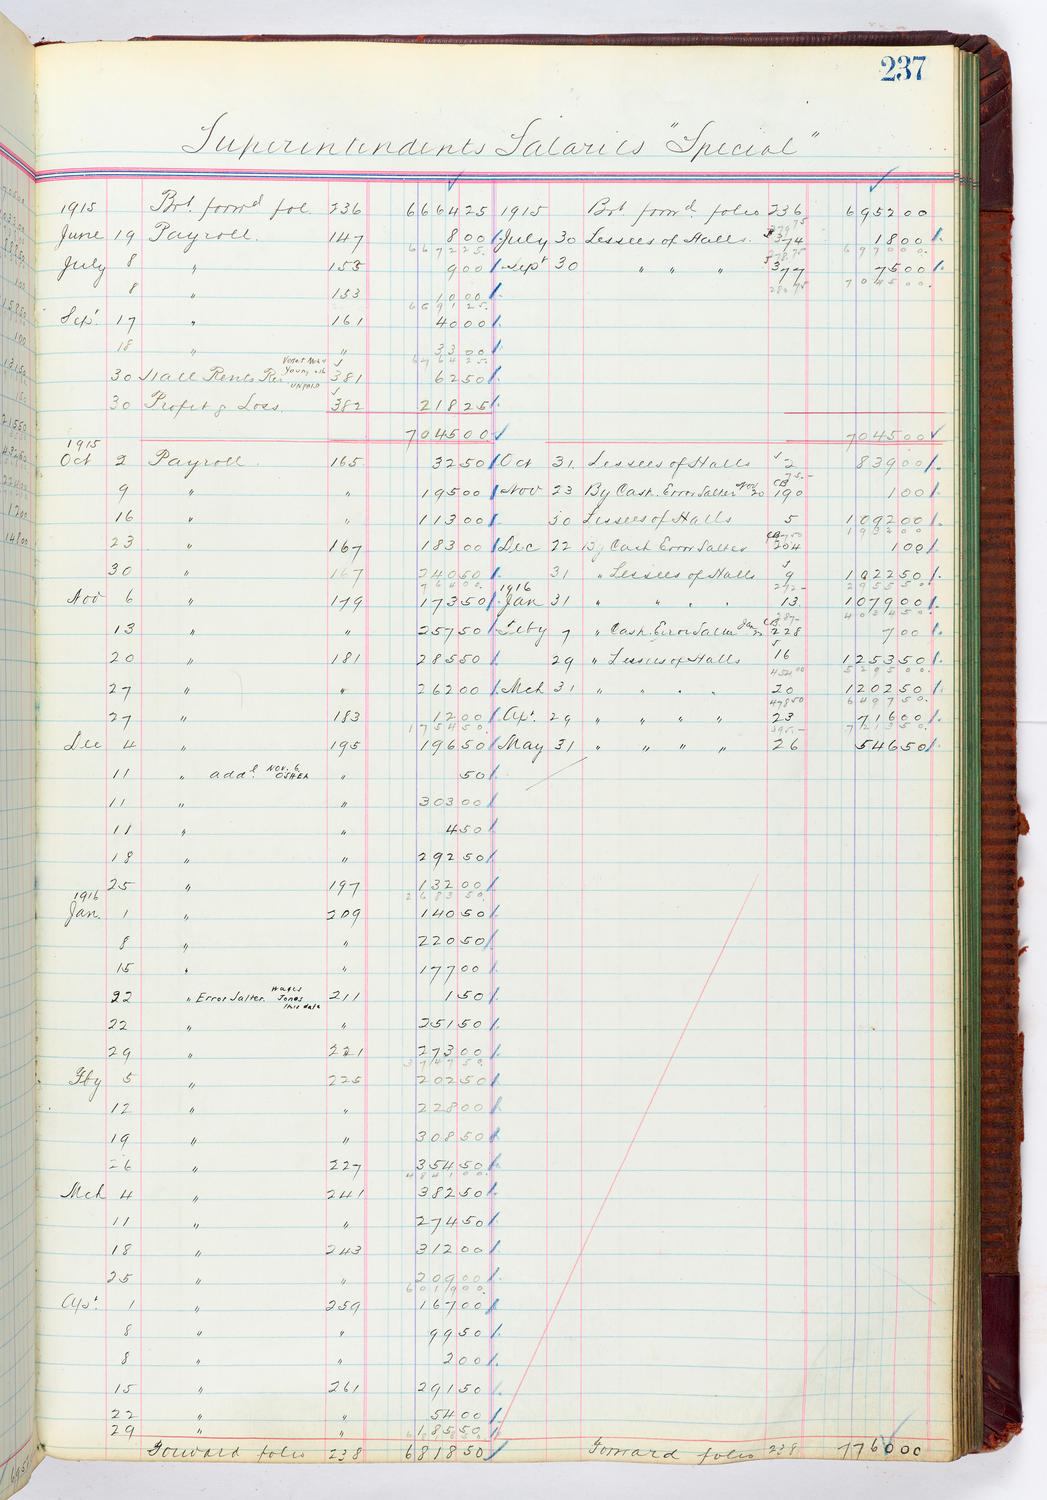 237
Superintendents Salaries "Special"
1915 Brt. forw'd fol. 236 6664 25 1915 Brt. forw'd. folio 236 6952 00
June 19 Payroll. 147 8 00 July 30 Lessees of Halls. 374 18 00
6672 25. 6970 00.
July 8 " 153 9 00 Sept 30 " " " 377 75 00
8 " 153 10 00 7045 00.
6691 25.
Sep't 17 " 161 40 00
18 " " 33 00
6764 25.
30 Hall Rents Rec. Young UNPAID 381 62 50
30 Profit & Loss. 382 218 25
7045 00 7045 00
1915
Oct 2 Payroll 165 32 50 Oct 31. Lessees of Halls 2 839 00
9 " " 195 00 Nov 23 By Cash. Error Salter Nov 20 CB 190 1 00
16 " " 113 00 30 Lessees of Halls 5 1092 00
1932 00
23 " 167 183 00 Dec 22 By Cash Error Salter CB 204 1 00
30 " 167 240 50 31 " Lessees of Halls 9 1022 50
764 00. 1916 2955 50.
Nov 6 " 179 173 50 Jan 31 " " " " 13. 1079 00
4034 50.
13 " " 257 50 Feby 7 " Cash. Error Salter Jan 22 CB. 228 7 00
20 " 181 285 50 29 " Lessees of Halls 16 1253 50
5295 00.
27 " " 262 00 Mch 31 " " " " 20 1202 50
6497 50.
27 " 183 12 00 Ap't. 29 " " " " 23 716 00
1754 50. 7213 50.
Dec 4 " 195 196 50 May 31 " " " " 26 546 50
11 " add'l NOV. 6 OSHEA " 50
11 " " 303 00
11 " " 4 50
18 " " 292 50
25 " 197 132 00
1916 2683 50.
Jan. 1 " 209 140 50
8 " " 220 50
15 " " 177 00
22 " Error Salter. Wages Jones this date 211 1 50
22 " " 251 50
29 " 221 273 00
3747 50.
Fby 5 " 225 202 50
12 " " 228 00
19 " " 308 50
26 " 227 354 50
4841 00.
Mch 4 " 241 382 50
11 " " 274 50
18 " 243 312 00
25 " " 209 00
6019 00.
Ap't. 1 " 259 167 00
8 " " 99 50
8 " " 2 00
15 " 261 291 50
22 " " 54 00
29 " " 185 50
Forward folio 238 6818 50 Forward folio 238 7760 00